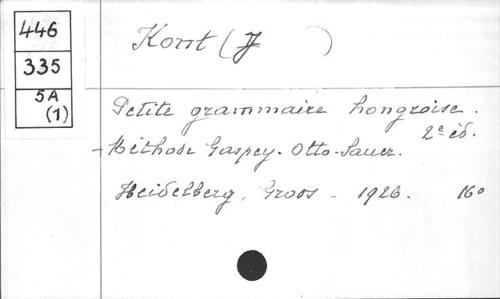 446
335
5A
(1)
Kont (J )
Petite grammaire hongroise.
2e éd.
Méthode Gaspey-Otto-Sauer.
Heidelberg, Groos - 1926. 16°